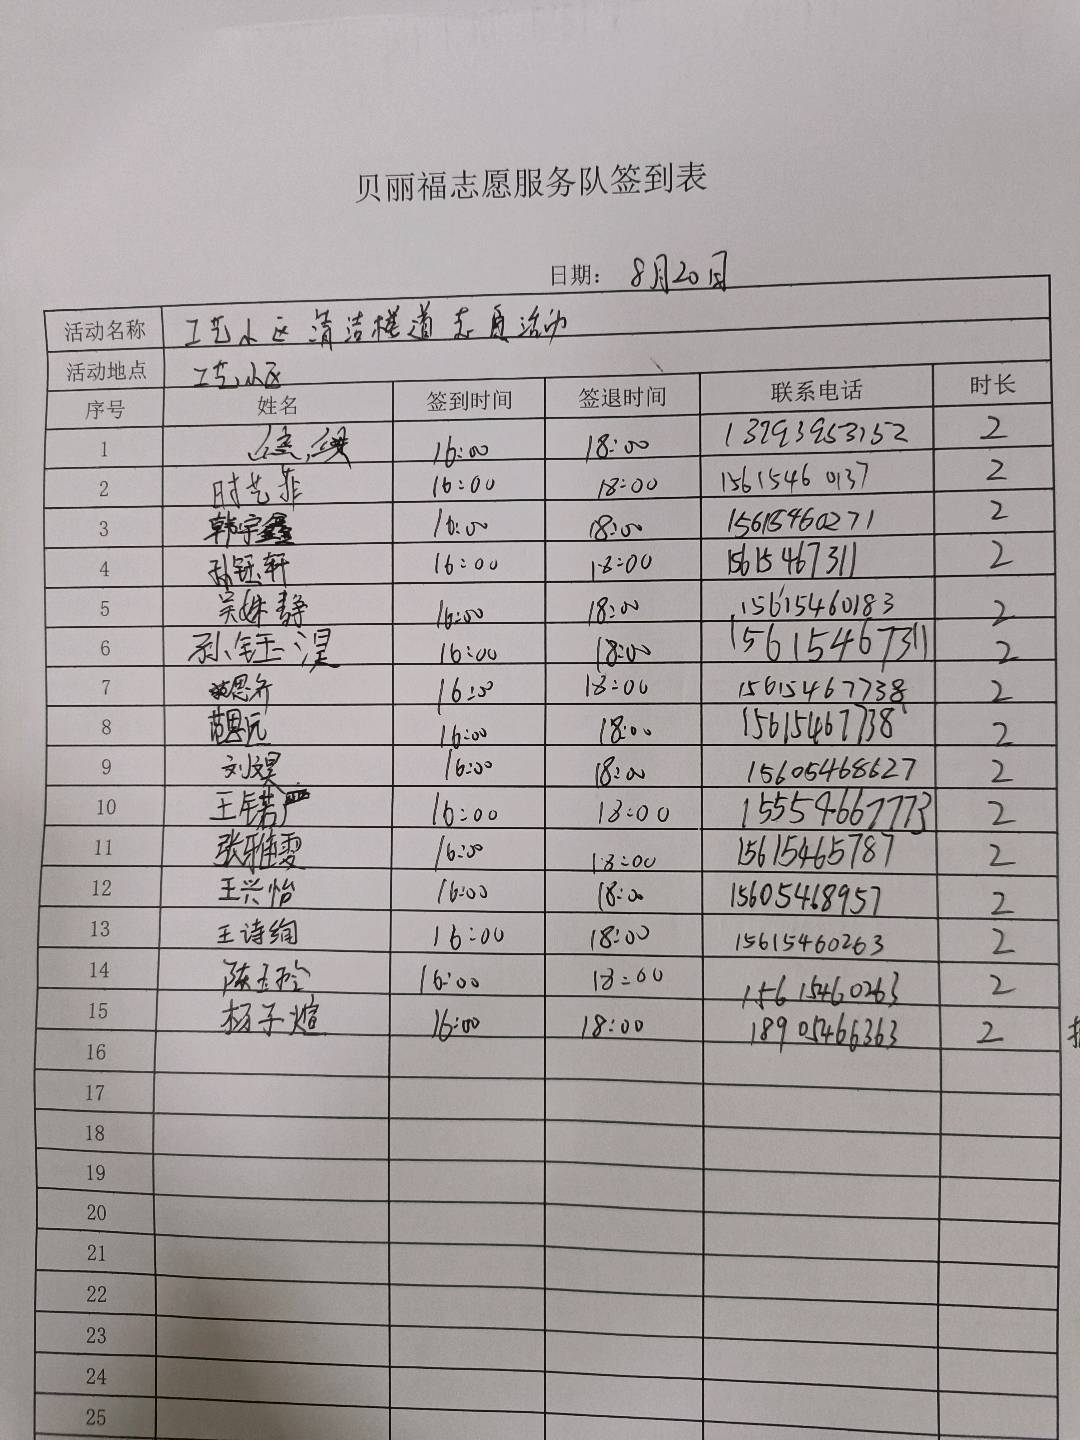 贝丽福志愿服务队签到表
日期： 8月20日
活动名称 工艺小区清洁楼道志愿活动
活动地点 工艺小区
序号 姓名 签到时间 签退时间 联系电话 时长
1 16:00 18:00 13793953152 2
2 时艺菲 16:00 18:00 15615460137 2
3 韩宇鑫 16:00 18:00 15615460271 2
4 孙钰轩 16:00 18:00 15615467311 2
5 吴姝静 16:00 18:00 15615460183 2
6 孙钰湦 16:00 18:00 15615467311 2
7 16:00 18:00 15615467738 2
8 范思远 16:00 18:00 15615467738 2
9 刘昊 16:00 18:00 15605468627 2
10 16:00 18:00 15554667773 2
11 张雅雯 16:00 18:00 15615465787 2
12 王兴怡 16:00 18:00 15605468957 2
13 王诗绚 16:00 18:00 15615460263 2
14 陈玉玲 16:00 18:00 15615460263 2
15 杨子煊 16:00 18:00 18905466363 2
16
17
18
19
20
21
22
23
24
25